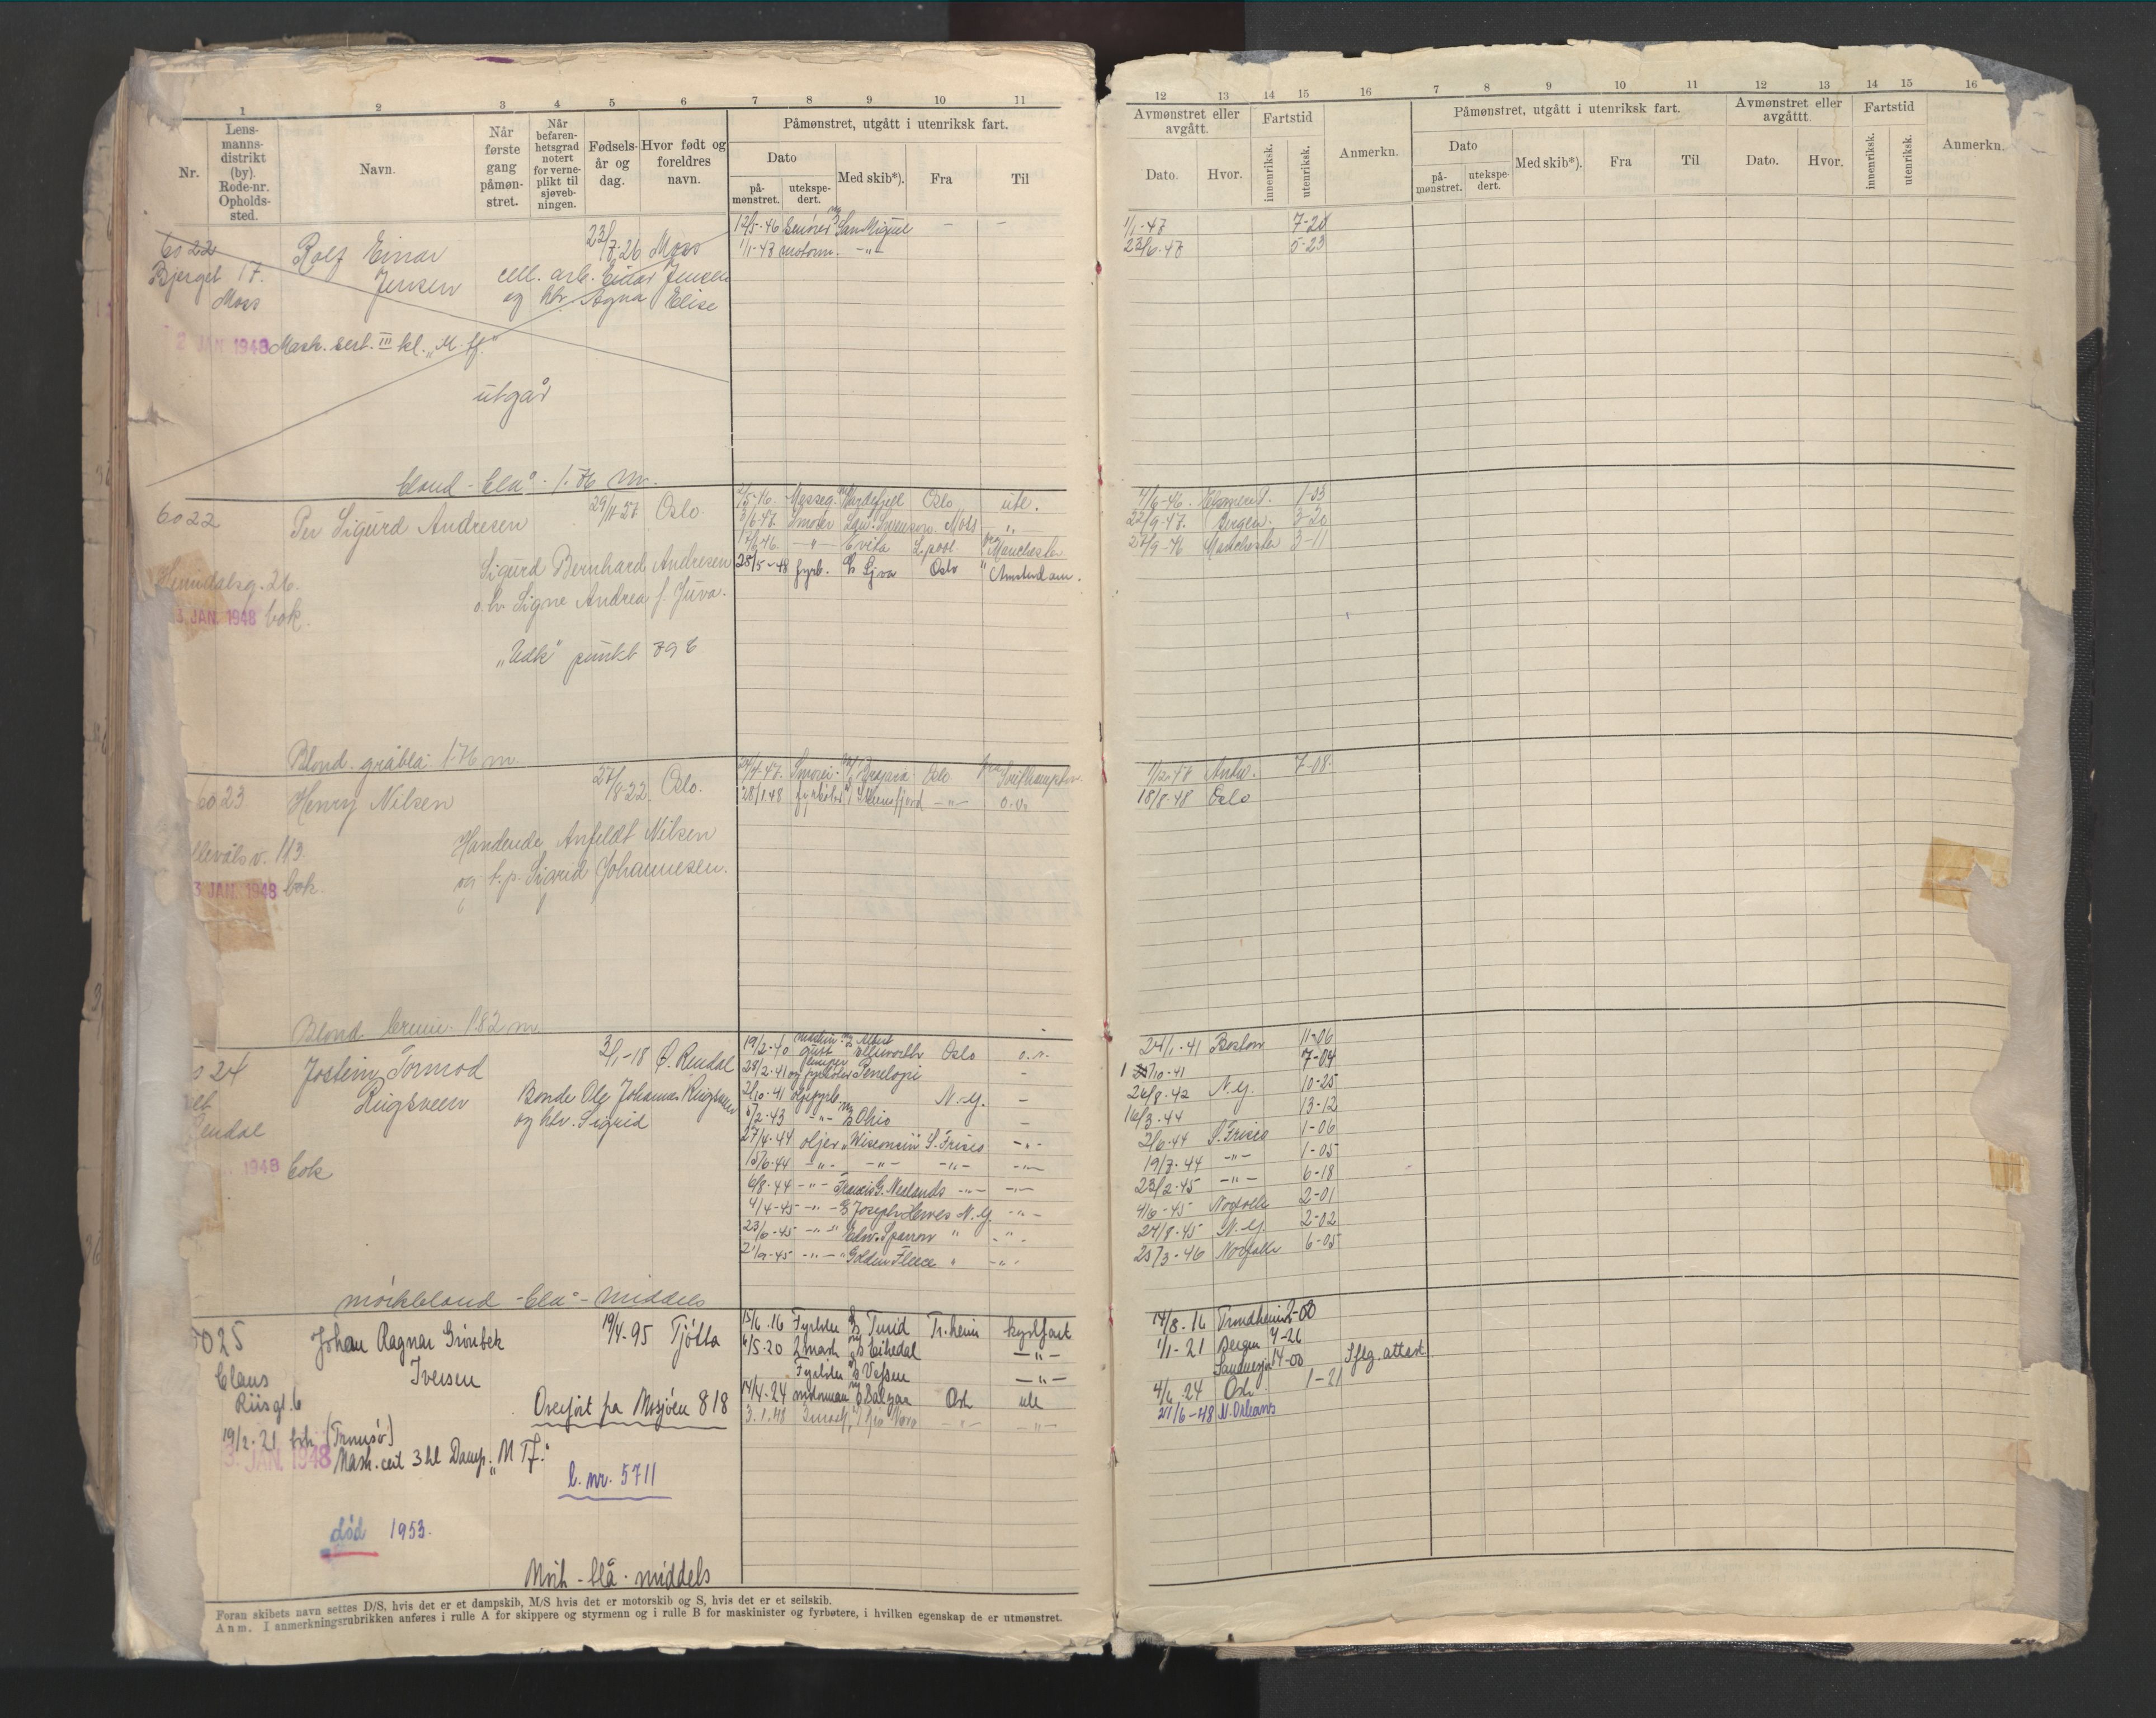 1 2 3 4 5 6 7 8 9 10 11
Nr.
Lens-
manns-
distrikt
(by).
Rode-nr.
Opholds-
sted.
Navn.
Når
første
gang
påmøn-
stret.
Når
befaren-
hetsgrad
notert
for verne-
plikt til
sjøveb-
ningen.
Fødsels-
år og
dag.
Hvor født og
foreldres
navn.
Påmønstret, utgått i utenriksk fart.
Dato
på-
mønstret.
utekspe-
dert.
Med skib*).
Fra
Til
6022 Rolf Einar 23/7-26 Moss 12/5-46 San Miguel - -
Bjerget 17. Jensen cell. arb. Einar Jensen 1/1-47 motorm. -"-
Moss og htr Agna Elise
2 JAN. 1948 Mask. sert. III kl. "M.
utgår
blond - blå - 1.76 m.
6022 Per Sigurd Andresen 29/11-27 Oslo. Messeg. Oslo ute.
3/6-47 Smører Lau. Sørensen Moss "
-"- Evita L.pool Manchester
Sigurd Bernhard Andresen 28/5-48 fyrb. Oslo " Amsterdam.
o.h. Signe Andrea f. Juva.
3 JAN. 1948 bok.
"Udk" punkt 79 b
Blond - gråblå 1.76 m.
6023 Henry Nilsen 27/8-22 Oslo. 24/4-47. Oslo
28/1 48 -"- o.v.
llevålsv. 113. Nilsen
og f.p. Sigrid Johannesen.
3 JAN. 1948 bok.
Blond brun. 182 m
24 Jostein Tormod 3/1-18 Ø. Rendal 19/2-40 Ellsworth Oslo o.v.
28/2-41 Penelopi -
Ringsveen Bonde Ole Johannes Ringsveen 2/10-41 oljefyrb. N.Y. -
og htr. Sigrid 5/2-43 -"- Ohio -
endal 27/4-44 oljer "Wisconsin S. Frisco -"-
15/6-44 -"- -"- -"- -"-
1948 bok
6/8-44 -"- Francis G. Newlands -"- -"-
4/4-45 -"- Joseph Hewes N.Y. -"-
23/6-45 -"- Edw. Sparrow " -"-
2/9-45 -"- "Golden Fleece " -"-
mørkblond - blå - middels
6025 Johan Ragnar Grönbek 19/4-95 Tjötta 15/6-16 Fyrbøter Turid Tr.heim kystfart
Claus Iversen 6/5-20 2 mask -"-
Riisgt. 6 Fyrbøter -"-
Overført fra Mosjöen 818 14/4-24 motormann Salgaa Oslo ute
19/2-21 bok (Tromsö) 3.1.48 2 mask. -"- -"-
3. JAN. 1948 Mask. cert 3 kl Damp. "M Tf."
l. nr. 5711
död 1953.
Mörk - blå - middels
Foran skibets navn settes D/S, hvis det er et dampskib, M/S hvis det er motorskib og S, hvis det er et seilskib.
Anm. I anmerkningsrubrikken anføres i rulle A for skippere og styrmenn og i rulle B for maskinister og fyrbøtere, i hvilken egenskap de er utmønstret.
12 13 14 15 16 7 8 9 10 11 12 13 14 15 16
Avmønstret eller
avgått.
Dato. Hvor.
Fartstid
innenriksk.
utenriksk.
Anmerkn.
Påmønstret, utgått i utenriksk fart.
Dato
på-
mønstret.
utekspe-
dert.
Med skib*).
Fra
Til
Avmønstret eller
avgåttt.
Dato. Hvor.
Fartstid
innenriksk.
utenriksk.
Anmerkn.
1/1-47 7-20
23/6-47 5-23
4/6-46. 1-33
22/9-47. Bergen. 3-20
Manchester 3-11
1/2-48 Antw. 7-08.
18/8-48 Oslo
24/1-41 Boston 11-06
7-04
26/8-42 N.Y. 10-25
16/3-44 13-12
2/6-44 S. Frisco 1-06
19/7-44 -"- 1-05
23/2-45 -"- 6-18
4/6-45 Norfolk 2-01
24/8-45 N.Y. 2-02
25/3-46 Norfolk 6-05
14/8-16 Trondheim
1/1-21 Bergen 7-26
14-00 Sfrg. attest
4/6-24 Oslo 1-21
21/6-48 N. Orleans